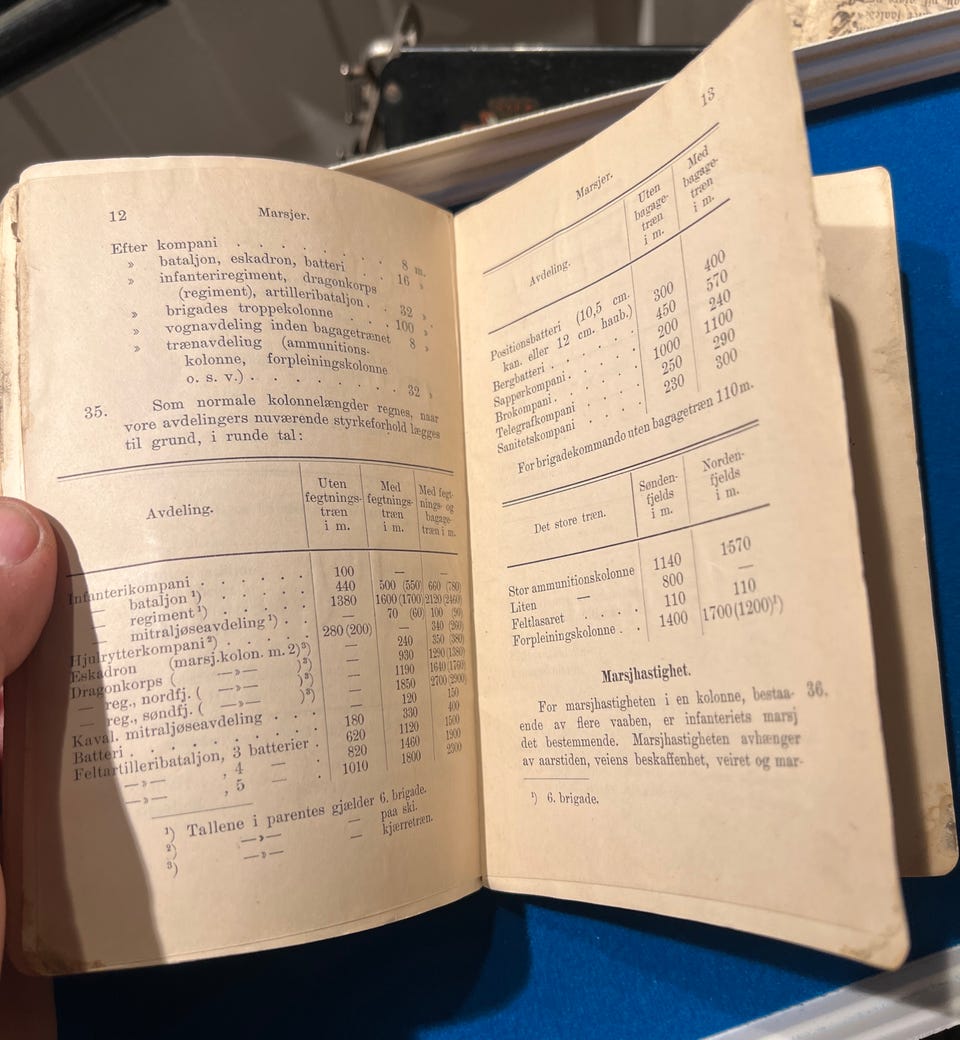 12 Marsjer.
Efter kompani . . . . . . . 8 m.
» bataljon, eskadron, batteri . . 16 »
» infanteriregiment, dragonkorps
(regiment), artilleribataljon . . 32 »
» brigades troppekolonne . . . 100 »
» vognavdeling inden bagagetrænet 8 »
» trænavdeling (ammunitions-
kolonne, forpleiningskolonne
o. s. v.) . . . . . . . . 32 »
35. Som normale kolonnelængder regnes, naar
vore avdelingers nuværende styrkeforhold lægges
til grund, i runde tal:
Avdeling. Uten fegtnings-træn i m. Med fegtnings-træn i m. Med fegt-nings- og bagage-træn i m.
Infanterikompani . . . . . 100 — —
— bataljon ¹) . . . . 440 500 (550) 660 (780)
— regiment ¹) . . . . 1380 1600 (1700) 2120 (2460)
— mitraljøseavdeling ¹) . 70 (60) 100 (90)
Hjulrytterkompani ²) . . . . 280 (200) — 340 (260)
Eskadron (marsj.kolon. m. 2) ³) — 240 350 (380)
Dragonkorps ( —»— ) ³) — 930 1290 (1380)
— reg., nordfj. ( —»— ) ³) — 1190 1640 (1760)
— reg., søndfj. ( —»— ) ³) — 1850 2700 (2900)
Kaval. mitraljøseavdeling . . . — 120 150
Batteri . . . . . . . . 180 330 400
Feltartilleribataljon, 3 batterier . 620 1120 1500
—»— , 4 — . 820 1460 1900
—»— , 5 — . 1010 1800 2300
¹) Tallene i parentes gjælder 6. brigade.
²) —»— — paa ski.
³) —»— — kjærretræn.
Marsjer. 13
Avdeling. Uten bagage-træn i m. Med bagage-træn i m.
Positionsbatteri (10,5 cm.
kan. eller 12 cm. haub.) 300 400
Bergbatteri . . . . . . 450 570
Sappørkompani . . . . . 200 240
Brokompani . . . . . . 1000 1100
Telegrafkompani . . . . 250 290
Sanitetskompani . . . . 230 300
For brigadekommando uten bagagetræn 110 m.
Det store træn. Sønden-fjelds i m. Norden-fjelds i m.
Stor ammunitionskolonne 1140 1570
Liten — 800 —
Feltlasaret . . . . 110 110
Forpleiningskolonne . . 1400 1700 (1200)¹)
Marsjhastighet.
For marsjhastigheten i en kolonne, bestaa- 36.
ende av flere vaaben, er infanteriets marsj
det bestemmende. Marsjhastigheten avhænger
av aarstiden, veiens beskaffenhet, veiret og mar-
¹) 6. brigade.